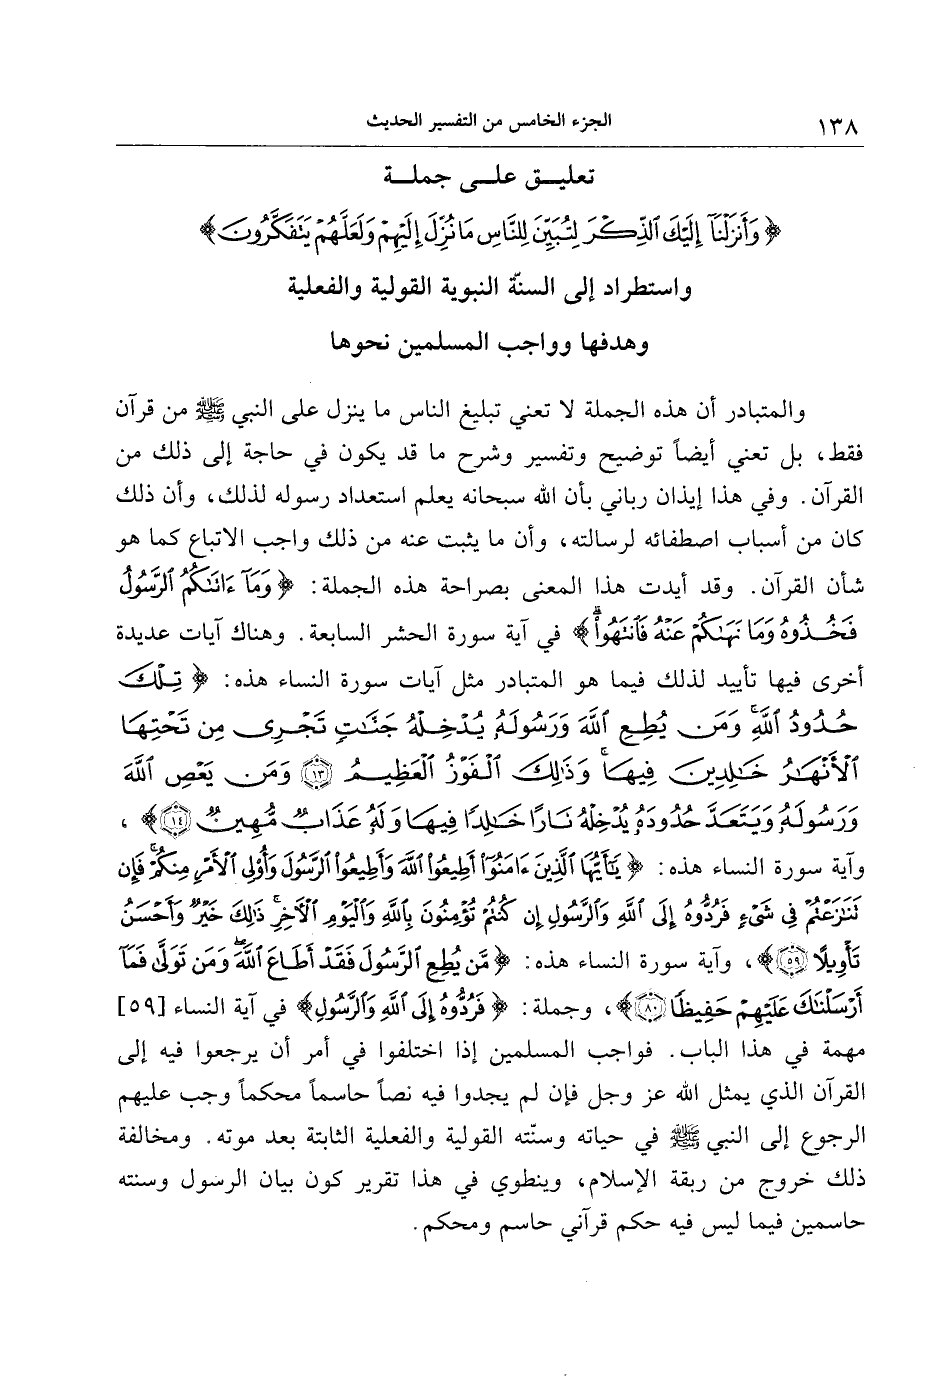 ١٣٨ الجزء الخامس من التفسير الحديث
تعليق على جملة
﴿ وَأَنزَلْنَآ إِلَيْكَ ٱلذِّكْرَ لِتُبَيِّنَ لِلنَّاسِ مَا نُزِّلَ إِلَيْهِمْ وَلَعَلَّهُمْ يَتَفَكَّرُونَ ﴾
واستطراد إلى السنّة النبوية القولية والفعلية
وهدفها وواجب المسلمين نحوها
والمتبادر أن هذه الجملة لا تعني تبليغ الناس ما ينزل على النبي ﷺ من قرآن
فقط، بل تعني أيضاً توضيح وتفسير وشرح ما قد يكون في حاجة إلى ذلك من
القرآن. وفي هذا إيذان رباني بأن الله سبحانه يعلم استعداد رسوله لذلك، وأن ذلك
كان من أسباب اصطفائه لرسالته، وأن ما يثبت عنه من ذلك واجب الاتباع كما هو
شأن القرآن. وقد أيدت هذا المعنى بصراحة هذه الجملة: ﴿ وَمَآ ءَاتَىٰكُمُ ٱلرَّسُولُ
فَخُذُوهُ وَمَا نَهَىٰكُمْ عَنْهُ فَٱنتَهُواْۚ ﴾ في آية سورة الحشر السابعة. وهناك آيات عديدة
أخرى فيها تأييد لذلك فيما هو المتبادر مثل آيات سورة النساء هذه: ﴿ تِلْكَ
حُدُودُ ٱللَّهِۚ وَمَن يُطِعِ ٱللَّهَ وَرَسُولَهُۥ يُدْخِلْهُ جَنَّٰتٍ تَجْرِى مِن تَحْتِهَا
ٱلْأَنْهَٰرُ خَٰلِدِينَ فِيهَاۚ وَذَٰلِكَ ٱلْفَوْزُ ٱلْعَظِيمُ ١٣ وَمَن يَعْصِ ٱللَّهَ
وَرَسُولَهُۥ وَيَتَعَدَّ حُدُودَهُۥ يُدْخِلْهُ نَارًا خَٰلِدًا فِيهَا وَلَهُۥ عَذَابٌ مُّهِينٌ ١٤ ﴾،
وآية سورة النساء هذه: ﴿ يَٰٓأَيُّهَا ٱلَّذِينَ ءَامَنُوٓاْ أَطِيعُواْ ٱللَّهَ وَأَطِيعُواْ ٱلرَّسُولَ وَأُوْلِى ٱلْأَمْرِ مِنكُمْۖ فَإِن
تَنَٰزَعْتُمْ فِى شَىْءٍ فَرُدُّوهُ إِلَى ٱللَّهِ وَٱلرَّسُولِ إِن كُنتُمْ تُؤْمِنُونَ بِٱللَّهِ وَٱلْيَوْمِ ٱلْأَخِرِۚ ذَٰلِكَ خَيْرٌ وَأَحْسَنُ
تَأْوِيلًا ٥٩ ﴾، وآية سورة النساء هذه: ﴿ مَّن يُطِعِ ٱلرَّسُولَ فَقَدْ أَطَاعَ ٱللَّهَۖ وَمَن تَوَلَّىٰ فَمَآ
أَرْسَلْنَٰكَ عَلَيْهِمْ حَفِيظًا ٨٠ ﴾، وجملة: ﴿ فَرُدُّوهُ إِلَى ٱللَّهِ وَٱلرَّسُولِ ﴾ في آية النساء [٥٩]
مهمة في هذا الباب. فواجب المسلمين إذا اختلفوا في أمر أن يرجعوا فيه إلى
القرآن الذي يمثل الله عز وجل فإن لم يجدوا فيه نصاً حاسماً محكماً وجب عليهم
الرجوع إلى النبي ﷺ في حياته وسنّته القولية والفعلية الثابتة بعد موته. ومخالفة
ذلك خروج من ربقة الإسلام، وينطوي في هذا تقرير كون بيان الرسول وسنته
حاسمين فيما ليس فيه حكم قرآني حاسم ومحكم.